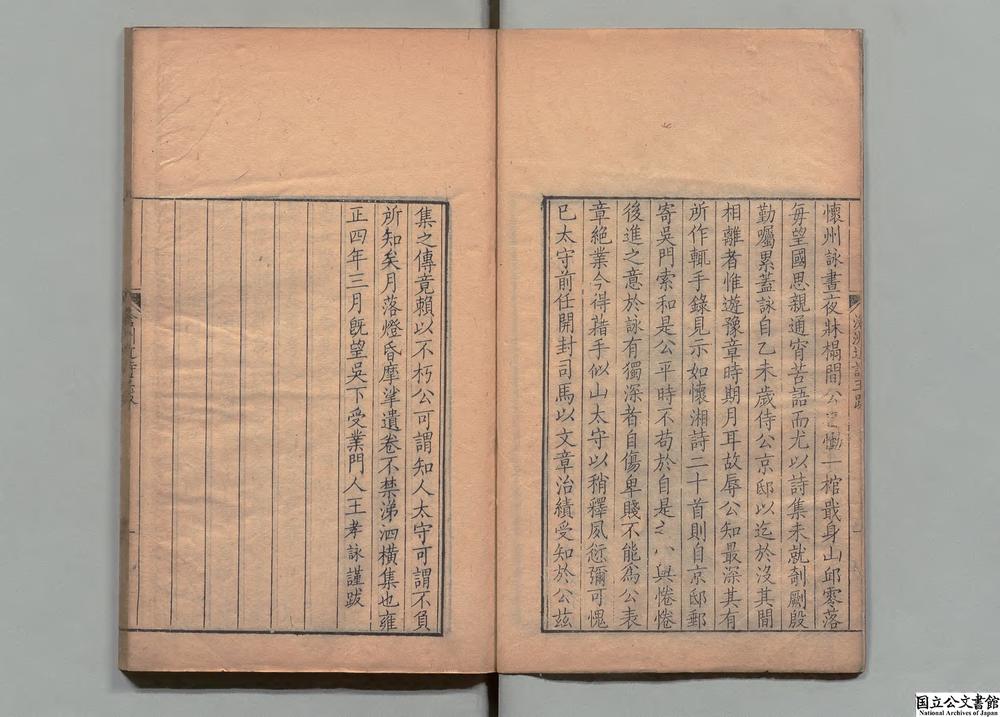 懷州詠晝夜牀榻間公之慟一棺戢身山邱零落
每望國思親通宵苦語而尤以詩集未就剞劂殷
勤囑累蓋詠自乙未歲侍公京邸以迄於沒其間
相離者惟遊豫章時期月耳故辱公知最深其有
所作輒手錄見示如懷湘詩二十首則自京邸郵
寄吳門索和是公平時不苟於自是之八與惓惓
後進之意於詠有獨深者自傷卑賤不能爲公表
章絕業今得藉手似山太守以稍釋夙愆彌可愧
已太守前任開封司馬以文章治績受知於公玆
集之傳竟賴以不朽公可謂知人太守可謂不負
所知矣月落燈昏摩挲遺卷不禁涕泗橫集也雍
正四年三月旣望吳下受業門人王孝詠謹跋
国立公文書館
National Archives of Japan